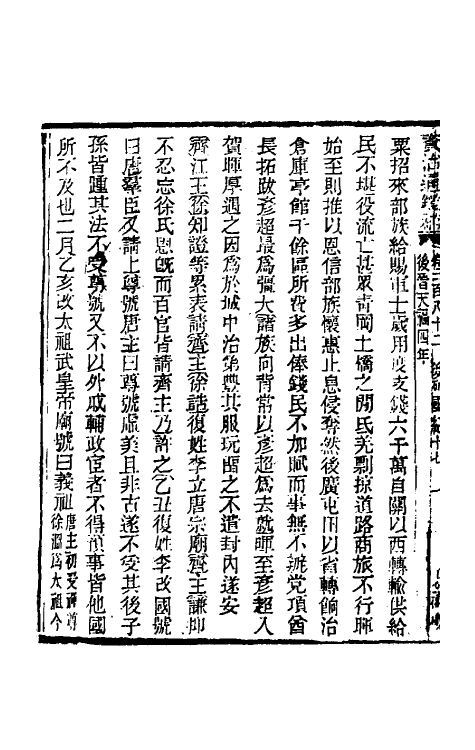 卷二百八十二
後晉天福四年
粟招來部族給賜軍士歲用度支錢六千萬自關以西轉輸供給
民不堪役流亡甚眾青岡土橋之閒氐羌剽掠道路商旅不行暉
始至則推以恩信部族懷惠止息侵奪然後廣屯田以省轉餉治
倉庫亭館千餘區所費多出俸錢民不加賦而事無不辦党項酋
長拓跋彥超最為彊大諸族向背常以彥超為去就暉至彥超入
賀暉厚遇之因為於城中治第豐其服玩留之不遣封內遂安
齊江王徐知證等累表請齊主徐誥復姓李立唐宗廟齊主謙抑
不忍忘徐氏恩既而百官皆請齊主乃許之乙丑復姓李改國號
曰唐羣臣又請上尊號唐主曰尊號虛美且非古遂不受其後子
孫皆踵其法不受尊號又不以外戚輔政宦者不得預事皆他國
所不及也二月乙亥改太祖武皇帝廟號曰義祖
唐主初受禪尊
徐溫為太祖今